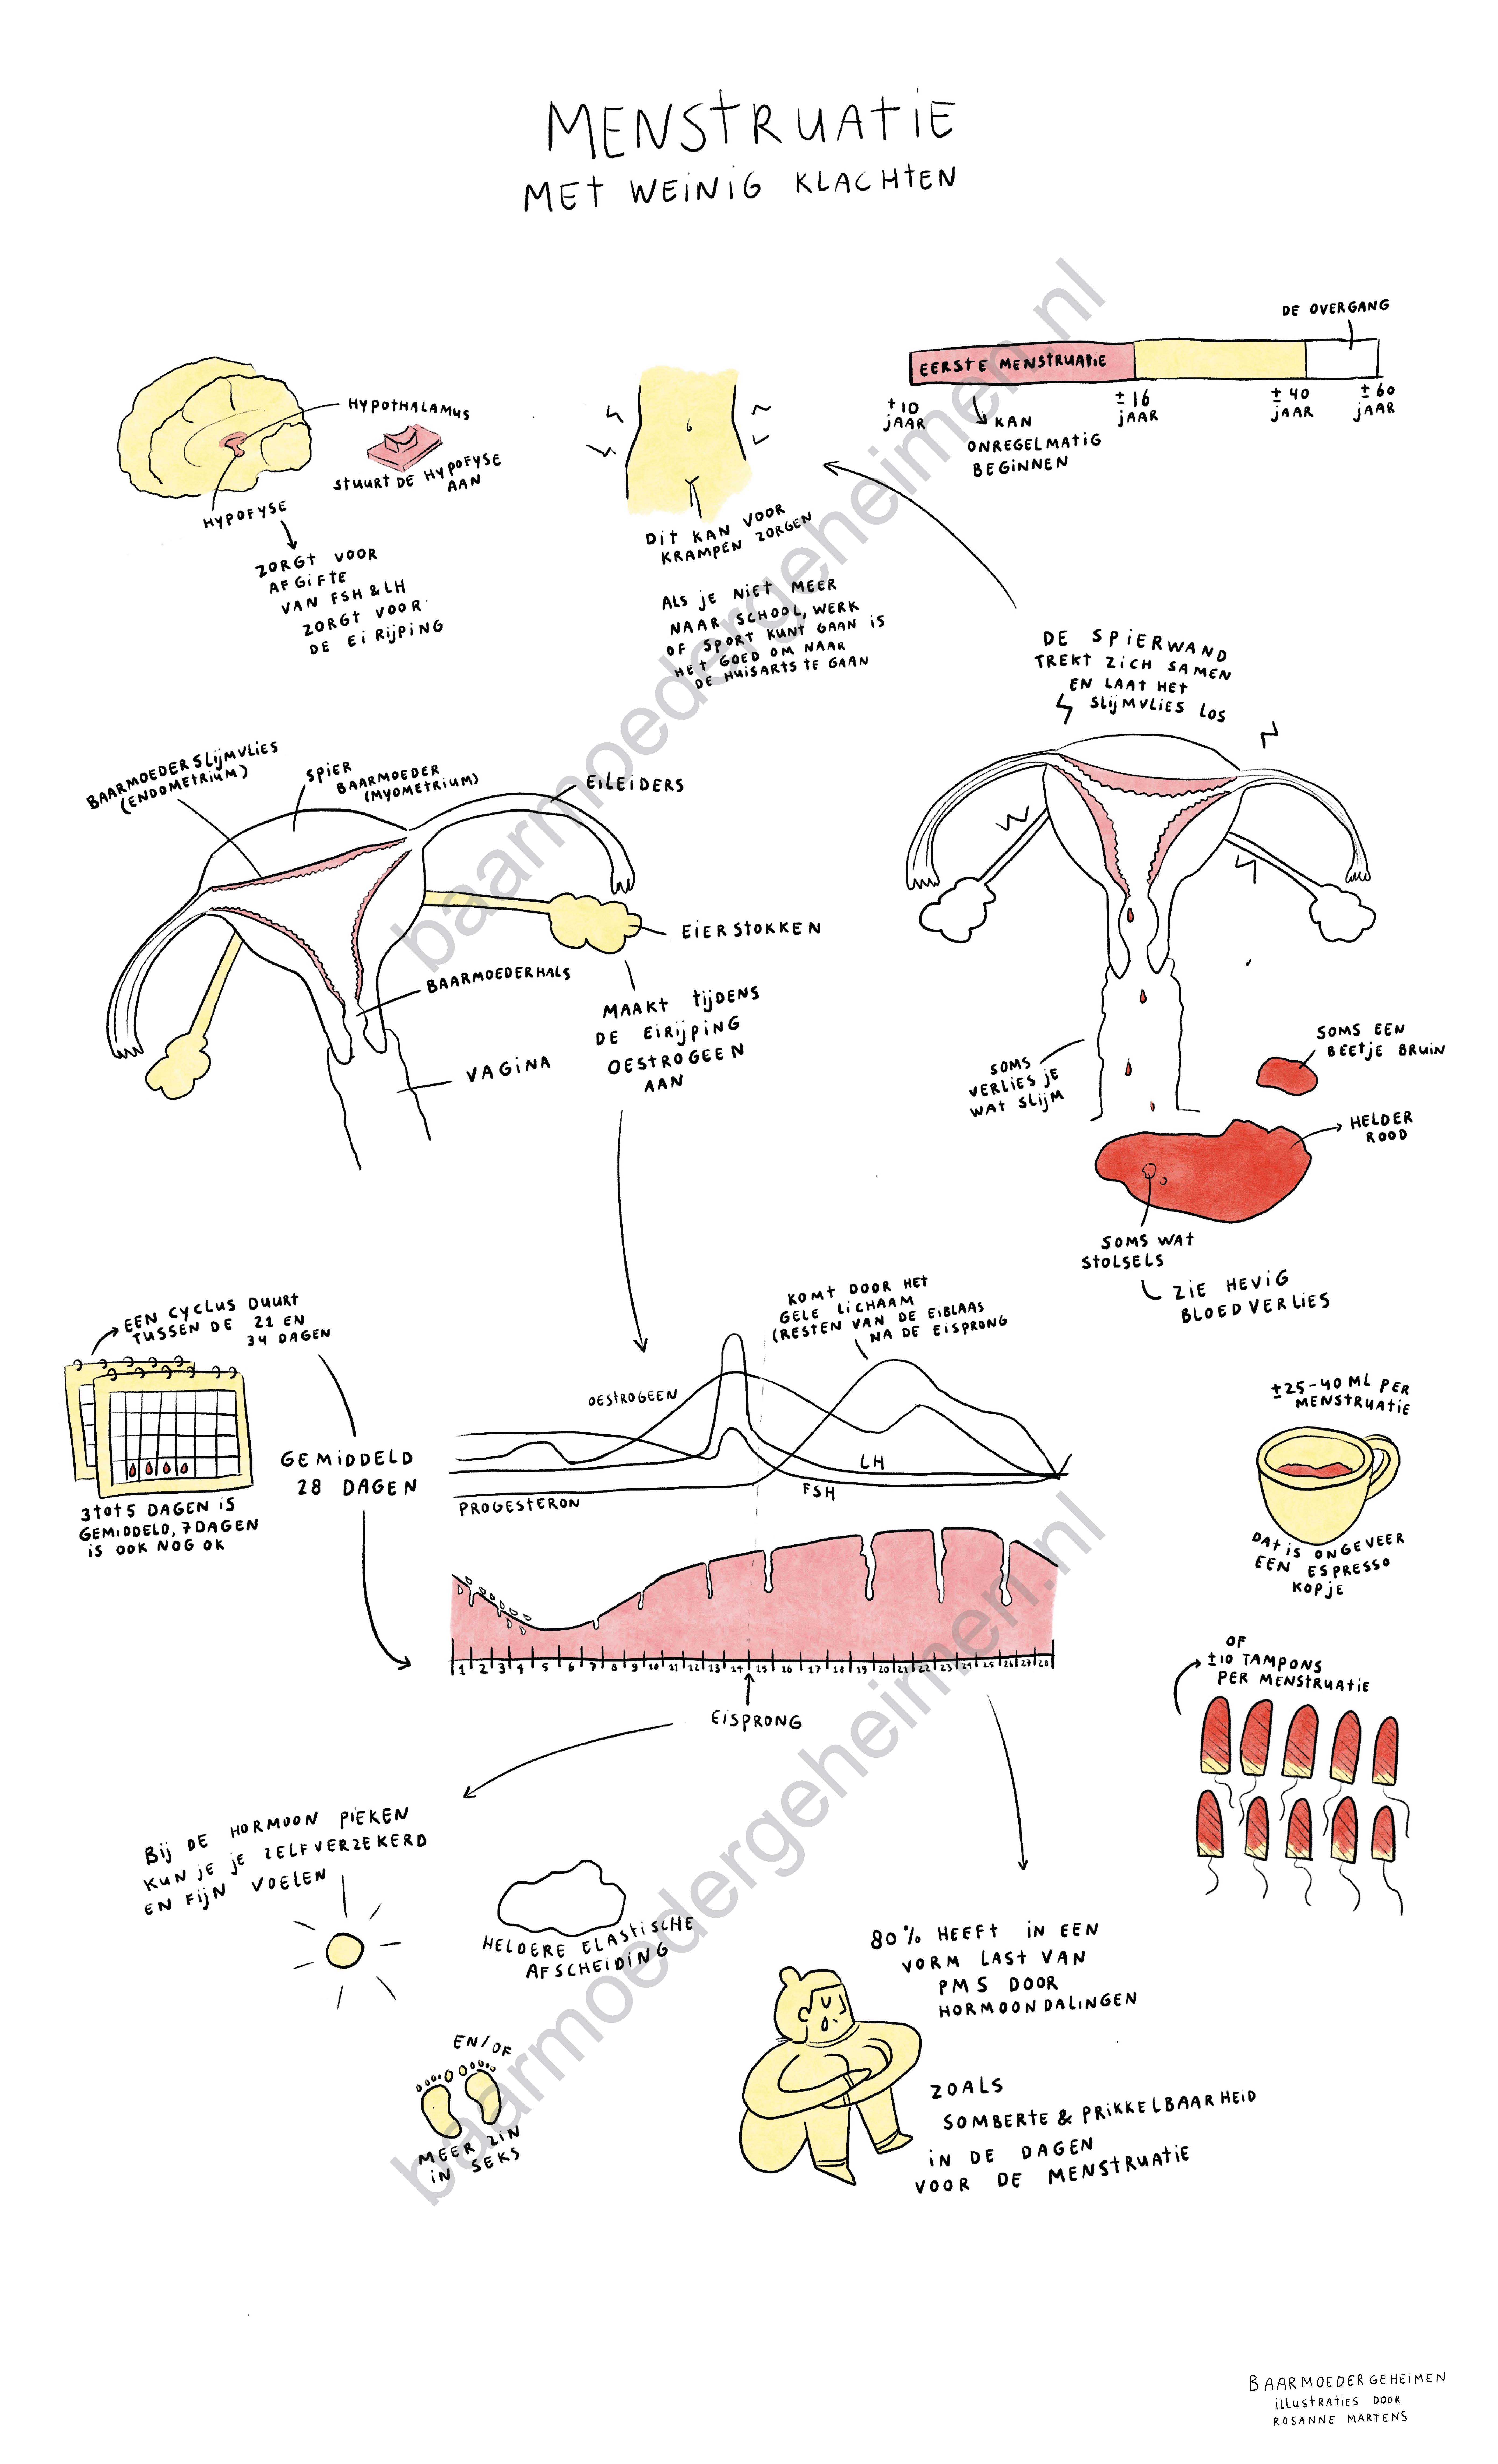 MENSTRUATIE
MET WEINIG KLACHTEN
HYPOTHALAMUS
STUURT DE HYPOFYSE
AAN
HYPOFYSE
ZORGT VOOR
AFGIFTE
VAN FSH & LH
ZORGT VOOR
DE EIRIJPING
DIT KAN VOOR
KRAMPEN ZORGEN
ALS JE NIET MEER
NAAR SCHOOL, WERK
OF SPORT KUNT GAAN IS
HET GOED OM NAAR
DE HUISARTS TE GAAN
DE OVERGANG
EERSTE MENSTRUATIE
± 10
JAAR
± 16
JAAR
± 40
JAAR
± 60
JAAR
KAN
ONREGELMATIG
BEGINNEN
DE SPIERWAND
TREKT ZICH SAMEN
EN LAAT HET
SLIJMVLIES LOS
BAARMOEDERSLIJMVLIES
(ENDOMETRIUM)
SPIER
BAARMOEDER
(MYOMETRIUM)
EILEIDERS
EIERSTOKKEN
BAARMOEDERHALS
VAGINA
MAAKT TIJDENS
DE EIRIJPING
OESTROGEEN
AAN
SOMS
VERLIES JE
WAT SLIJM
SOMS EEN
BEETJE BRUIN
HELDER
ROOD
SOMS WAT
STOLSELS
ZIE HEVIG
BLOEDVERLIES
EEN CYCLUS DUURT
TUSSEN DE 21 EN
34 DAGEN
3 TOT 5 DAGEN IS
GEMIDDELD, 7 DAGEN
IS OOK NOG OK
GEMIDDELD
28 DAGEN
KOMT DOOR HET
GELE LICHAAM
(RESTEN VAN DE EIBLAAS
NA DE EISPRONG
OESTROGEEN
LH
FSH
PROGESTERON
1 2 3 4 5 6 7 8 9 10 11 12 13 14 15 16 17 18 19 20 21 22 23 24 25 26 27 28
EISPRONG
±25-40 ML PER
MENSTRUATIE
DAT IS ONGEVEER
EEN ESPRESSO
KOPJE
OF
±10 TAMPONS
PER MENSTRUATIE
BIJ DE HORMOON PIEKEN
KUN JE JE ZELFVERZEKERD
EN FIJN VOELEN
HELDERE ELASTISCHE
AFSCHEIDING
EN/OF
MEER ZIN
IN SEKS
80% HEEFT IN EEN
VORM LAST VAN
PMS DOOR
HORMOONDALINGEN
ZOALS
SOMBERTE & PRIKKELBAARHEID
IN DE DAGEN
VOOR DE MENSTRUATIE
BAARMOEDERGEHEIMEN
ILLUSTRATIES DOOR
ROSANNE MARTENS
baarmoedergeheimen.nl
baarmoedergeheimen.nl